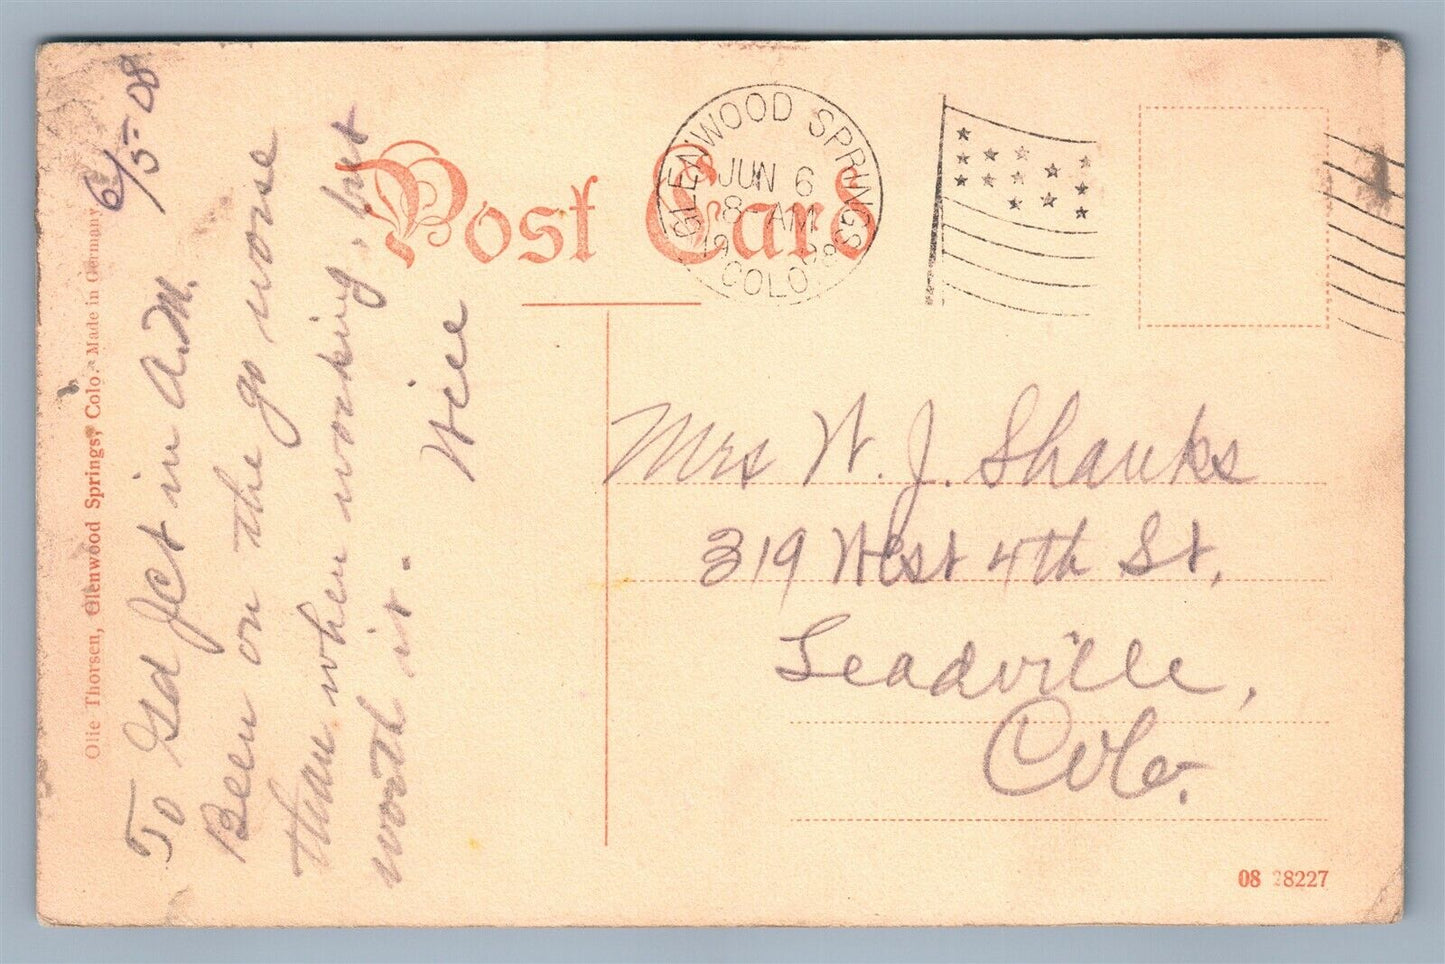 Post Card
GLENWOOD SPRINGS
JUN 6
8 AM
1908
COLO.
6/5-08
To Gd Jct in A.M.
Been on the go worse
than when working, but
worth it.
Mrs W. J. Shanks
319 West 4th St,
Leadville,
Colo.
Olie Thorsen, Glenwood Springs, Colo. Made in Germany
08 28227